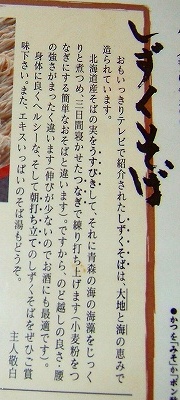 しずくそば
おもいっきりテレビで紹介されたしずくそばは、大地と海の恵みで
造られています。
北海道産そばの実をうすびきして、それに青森の海の海藻をじっく
りと煮つめ、三日間寝かせたつなぎで練り打ち上げます（小麦粉をつ
なぎにする簡単なおそばと違います）。ですから、のど越しの良さ・腰
の強さがまったく違います（伸びが少ないのでお酒にも最適です）。
身体に良くヘルシーな、そして朝打ち立てのしずくそばをぜひご賞
味下さい。また、エキスいっぱいのそば湯もどうぞ。
主人敬白
●かつを「みそ」か"ポン